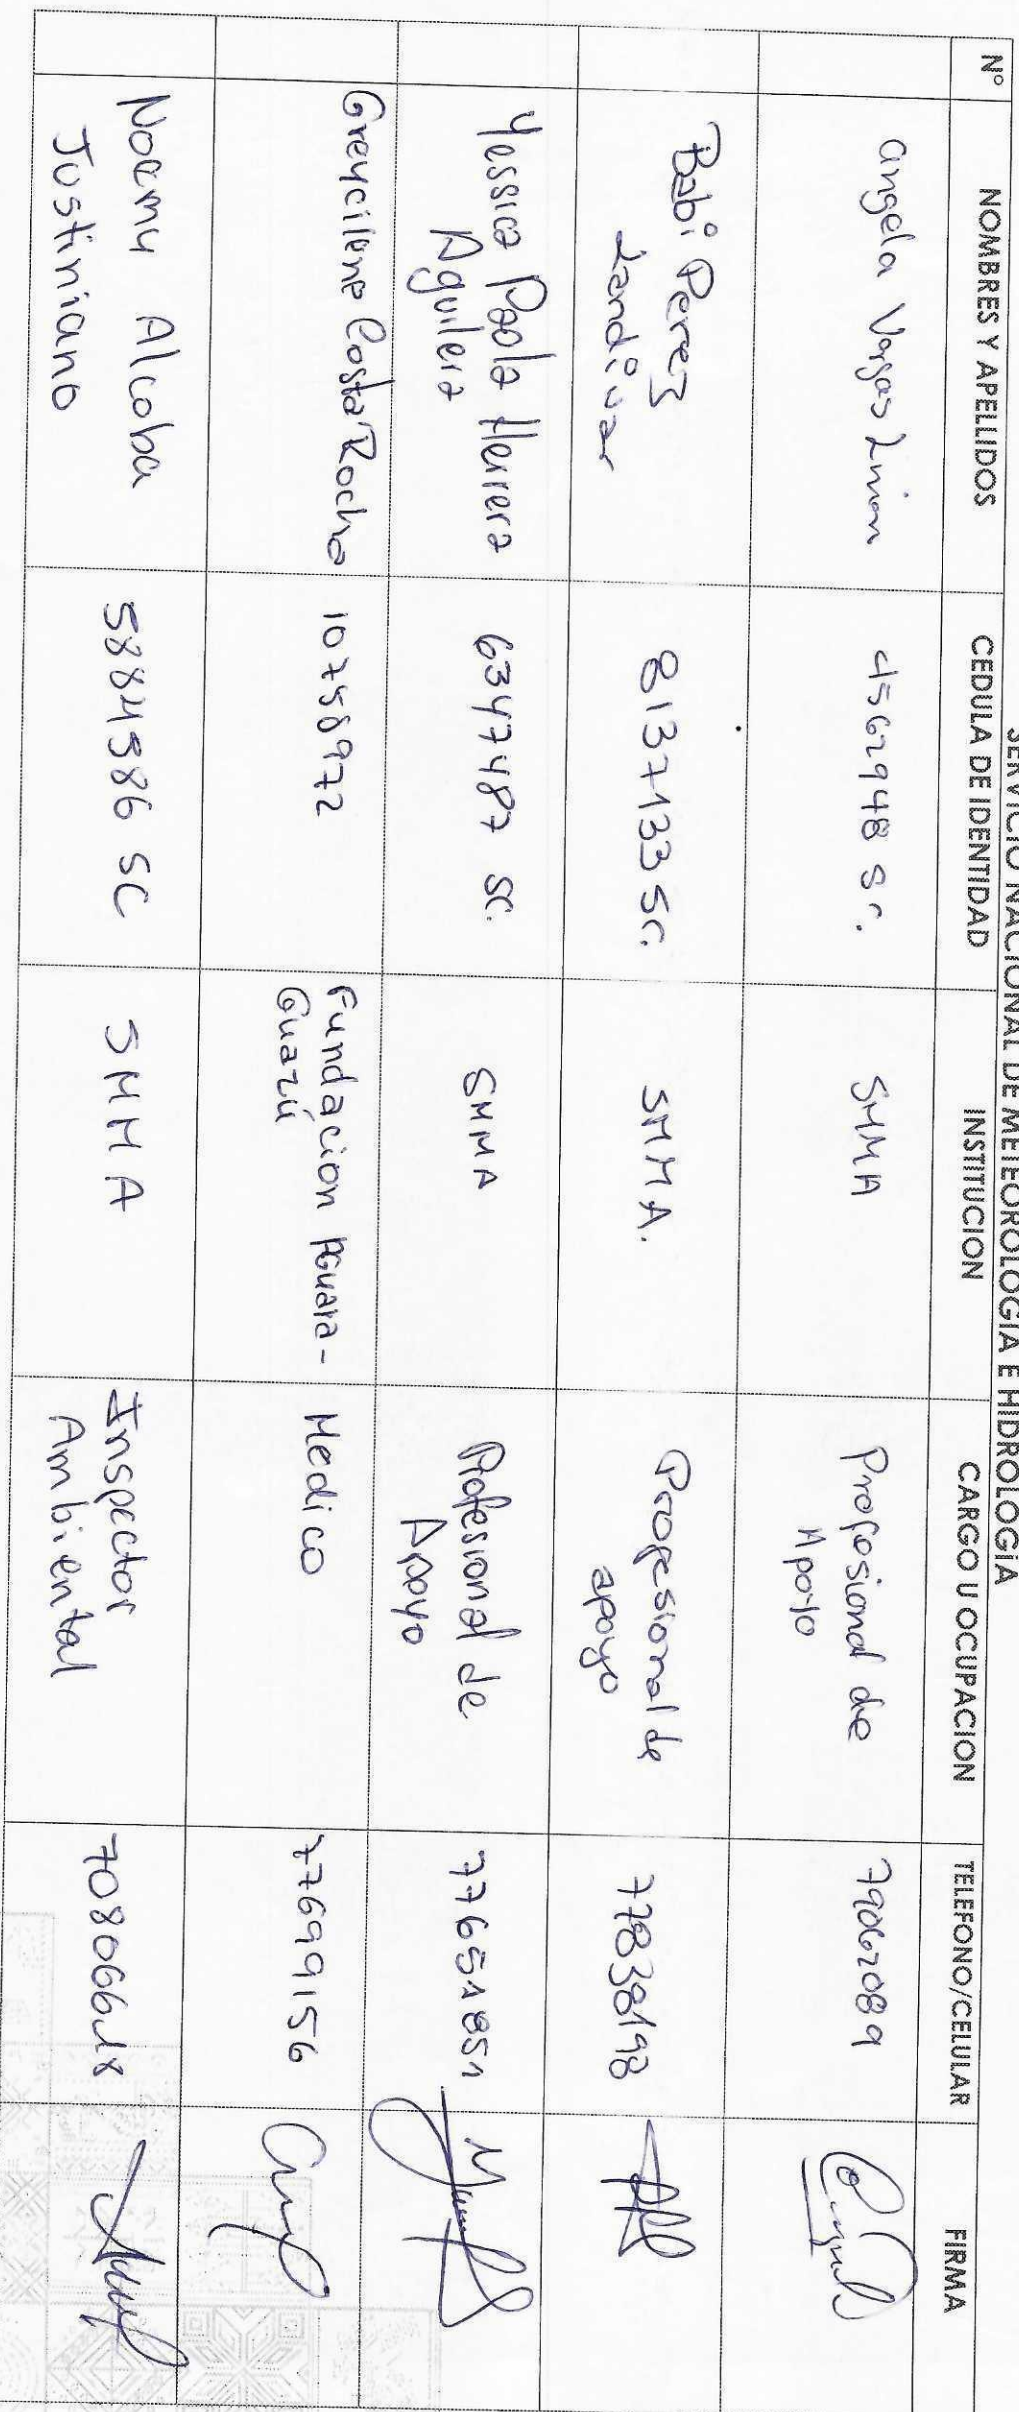 SERVICIO NACIONAL DE METEOROLOGIA E HIDROLOGIA
N° NOMBRES Y APELLIDOS CEDULA DE IDENTIDAD INSTITUCION CARGO U OCUPACION TELEFONO/CELULAR FIRMA
angela Vargas 4562948 Sc. SMMA Profesional de Apoyo 79062089
Babi Perez Landivar 8137133 SC. SMMA. Profesional de apoyo 77838198
Yessica Paola Herrera Aguilera 6347487 SC. SMMA Profesional de Apoyo 77651851
Greycilene Costa Rocha 10758972 Fundacion Aguara-Guazú Medico 77699156
Noemy Alcoba Justiniano 5884586 SC SMMA Inspector Ambiental